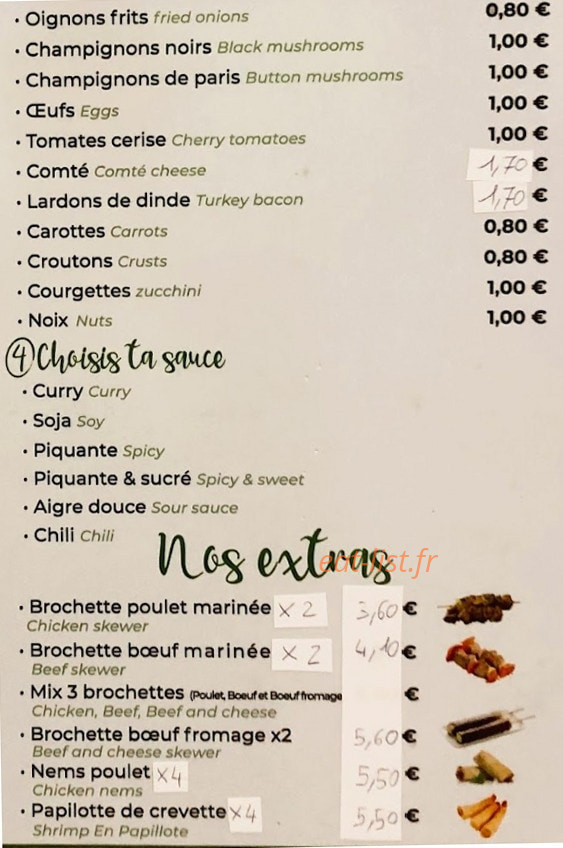 • Oignons frits fried onions 0,80 €
• Champignons noirs Black mushrooms 1,00 €
• Champignons de paris Button mushrooms 1,00 €
• Œufs Eggs 1,00 €
• Tomates cerise Cherry tomatoes 1,00 €
• Comté Comté cheese 1,70 €
• Lardons de dinde Turkey bacon 1,70 €
• Carottes Carrots 0,80 €
• Croutons Crusts 0,80 €
• Courgettes zucchini 1,00 €
• Noix Nuts 1,00 €
4 Choisis ta sauce
• Curry Curry
• Soja Soy
• Piquante Spicy
• Piquante & sucré Spicy & sweet
• Aigre douce Sour sauce
• Chili Chili
Nos extras
eat-list.fr
• Brochette poulet marinée x 2 3,60 €
Chicken skewer
• Brochette bœuf marinée x 2 4,10 €
Beef skewer
• Mix 3 brochettes (Poulet, Boeuf et Boeuf fromage €
Chicken, Beef, Beef and cheese
• Brochette bœuf fromage x2 5,60 €
Beef and cheese skewer
• Nems poulet x4 5,50 €
Chicken nems
• Papilotte de crevette x4 5,50 €
Shrimp En Papillote